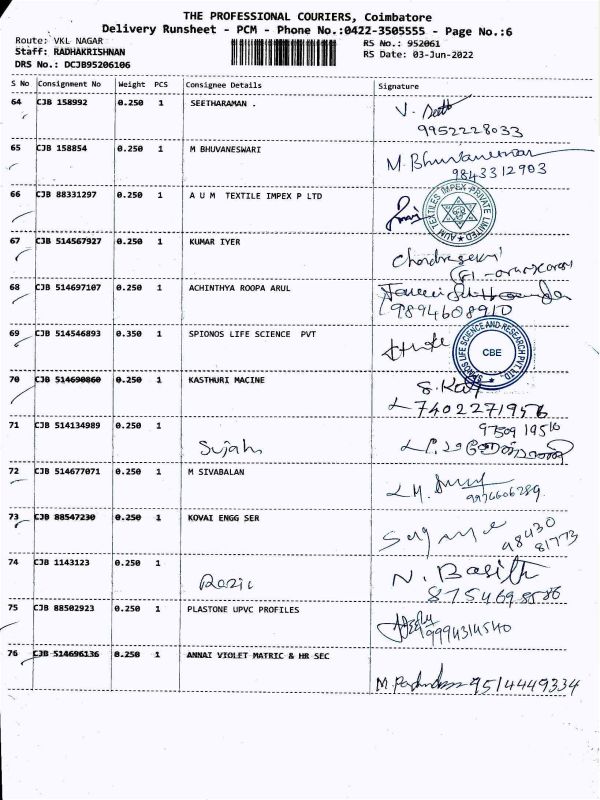 THE PROFESSIONAL COURIERS, Coimbatore
Delivery Runsheet - PCM - Phone No.:0422-3505555 - Page No.:6
Route: VKL NAGAR RS No.: 952061
Staff: RADHAKRISHNAN RS Date: 03-Jun-2022
DRS No.: DCJB95206106
S No Consignment No Weight PCS Consignee Details Signature
64 CJB 158992 0.250 1 SEETHARAMAN .
9952228033
65 CJB 158854 0.250 1 M BHUVANESWARI M. Bhuvaneswari
9843312903
66 CJB 88331297 0.250 1 A U M TEXTILE IMPEX P LTD
AUM TEXTILES IMPEX PRIVATE LIMITED
67 CJB 514567927 0.250 1 KUMAR IYER
68 CJB 514697107 0.250 1 ACHINTHYA ROOPA ARUL
9894608910
69 CJB 514546893 0.350 1 SPIONOS LIFE SCIENCE PVT
SPIONOS LIFE SCIENCE AND RESEARCH PVT LTD. CBE
70 CJB 514690860 0.250 1 KASTHURI MACINE
7402271956
71 CJB 514134989 0.250 1
72 CJB 514677071 0.250 1 M SIVABALAN
73 CJB 88547230 0.250 1 KOVAI ENGG SER
98430
81773
74 CJB 1143123 0.250 1 N. Basith
75 CJB 88502923 0.250 1 PLASTONE UPVC PROFILES
9994314540
76 CJB 514696136 0.250 1 ANNAI VIOLET MATRIC & HR SEC
9514449334